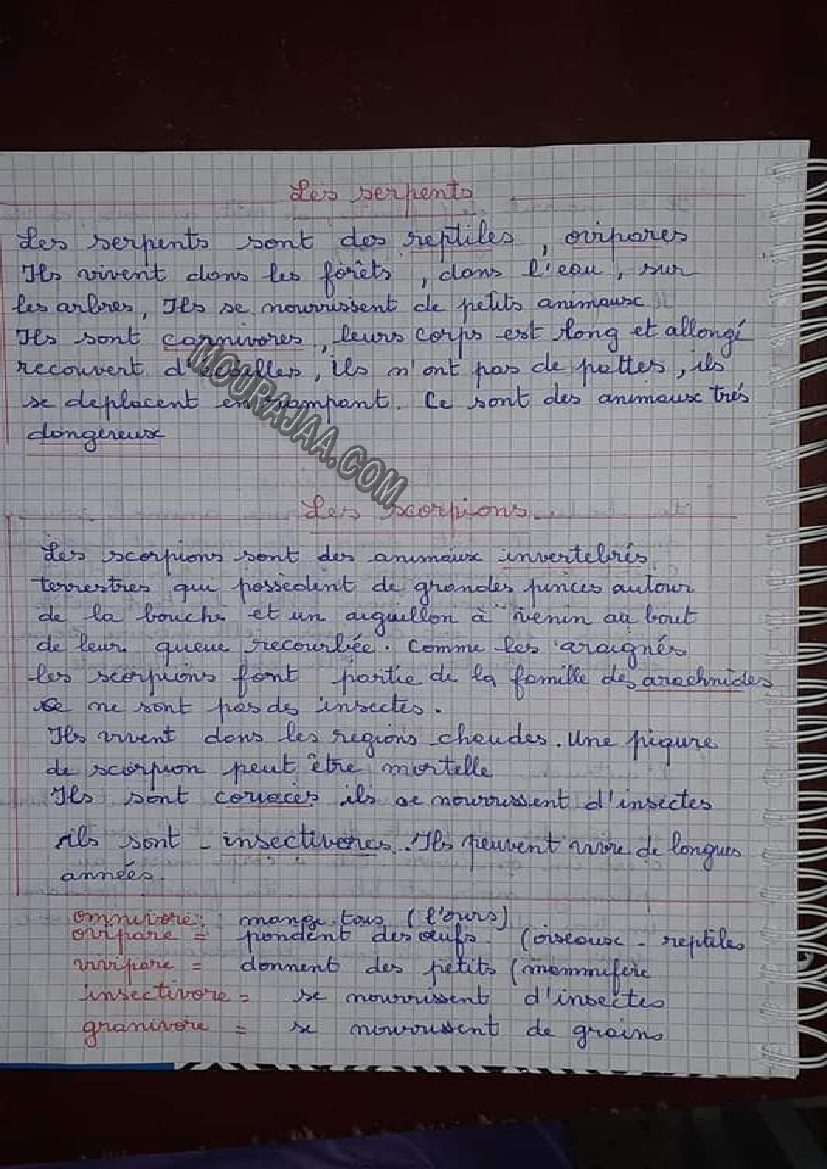 Les serpents
Les serpents sont des reptiles, ovipares
Ils vivent dans les forêts, dans l'eau, sur
les arbres, Ils se nourrissent de petits animaux
Ils sont carnivores, leurs corps est long et allongé
recouvert d'écailles, ils n'ont pas de pattes, ils
se deplacent en rampant. Ce sont des animaux trés
dangereux
MOURAJAA.COM
Les scorpions
Les scorpions sont des animaux invertebrés
terrestres qui possedent de grandes pinces autour
de la bouche et un aiguillon à venin au bout
de leur queue recourbée. Comme les araignés
les scorpions font partie de la famille des arachnides
ne sont pas des insectes.
Ils vivent dans les regions chaudes. Une piqure
de scorpion peut être mortelle
Ils sont coriaces ils se nourrissent d'insectes
ils sont - insectivores. Ils peuvent vivre de longues
années.
omnivore: mange tous (l'ours)
ovipare = pondent des œufs. (oiseaux - reptiles
vivipare = donnent des petits (mammifère
insectivore = se nourrissent d'insectes
granivore = se nourrissent de grains